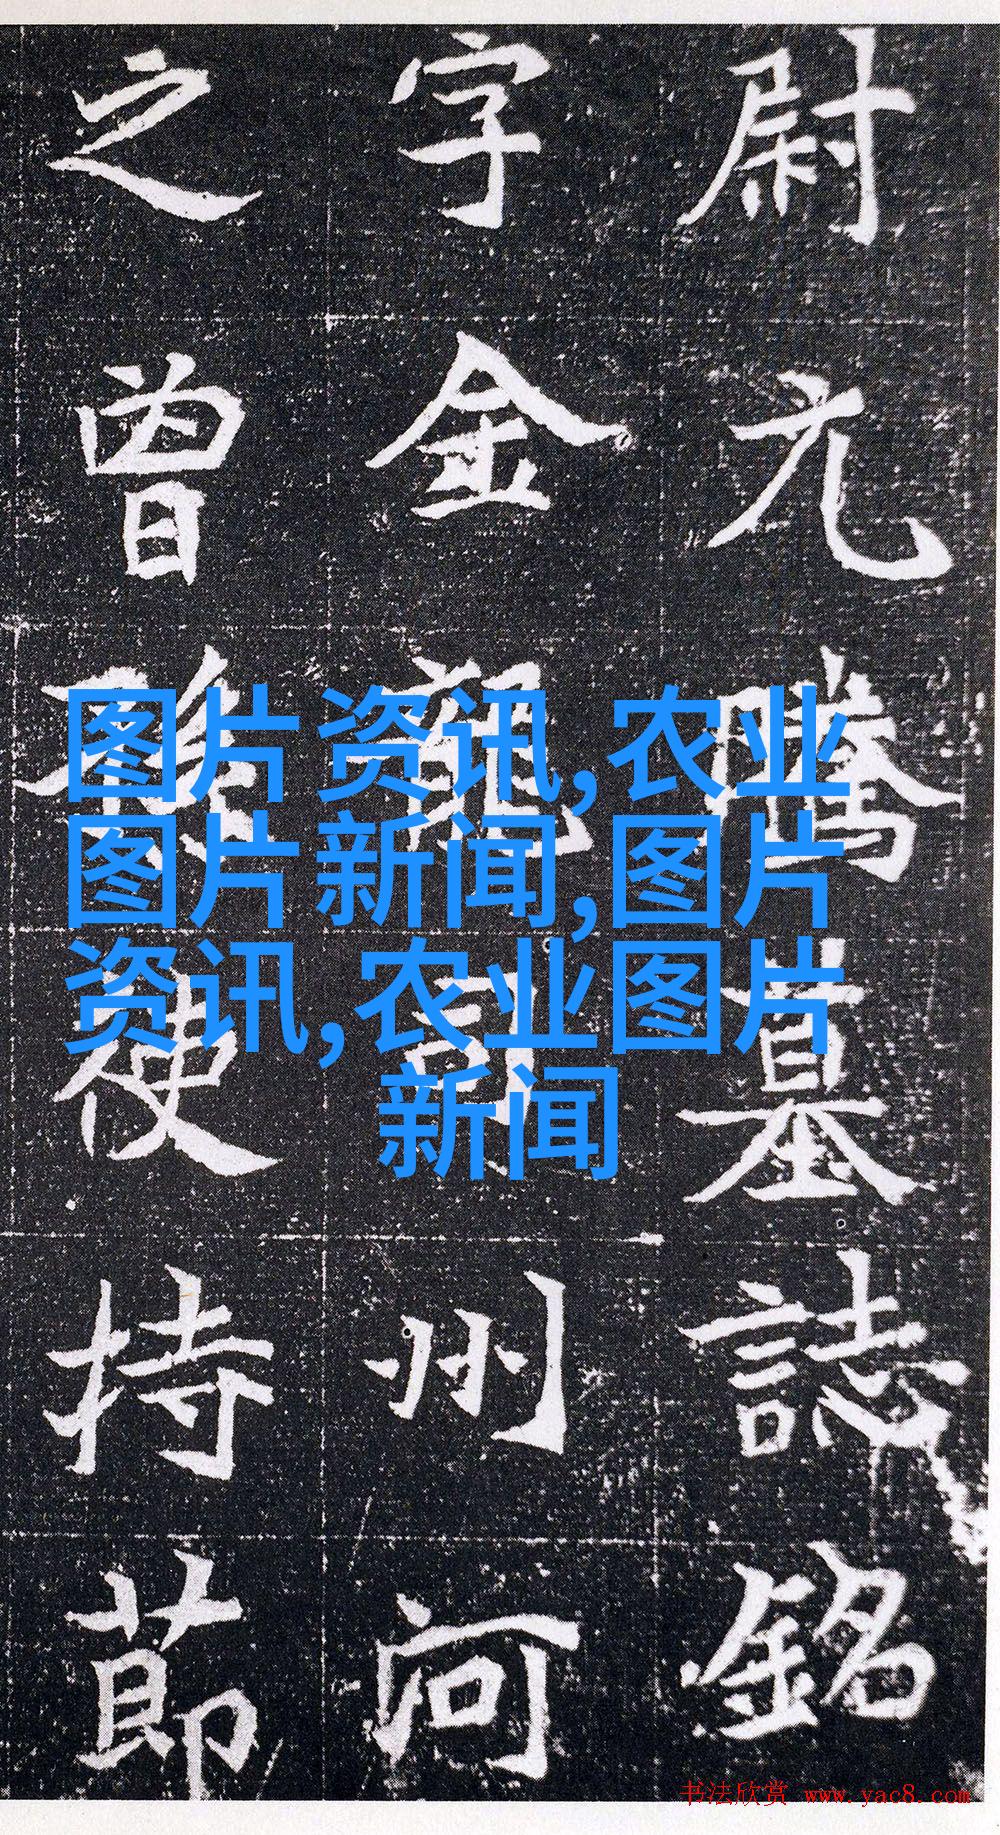 尉元騰墓誌銘
字金龍司州河
之曾孫使持節
图片资讯,农业
图片新闻,图片
资讯,农业图片
新闻
书法欣赏 www.yac8.com